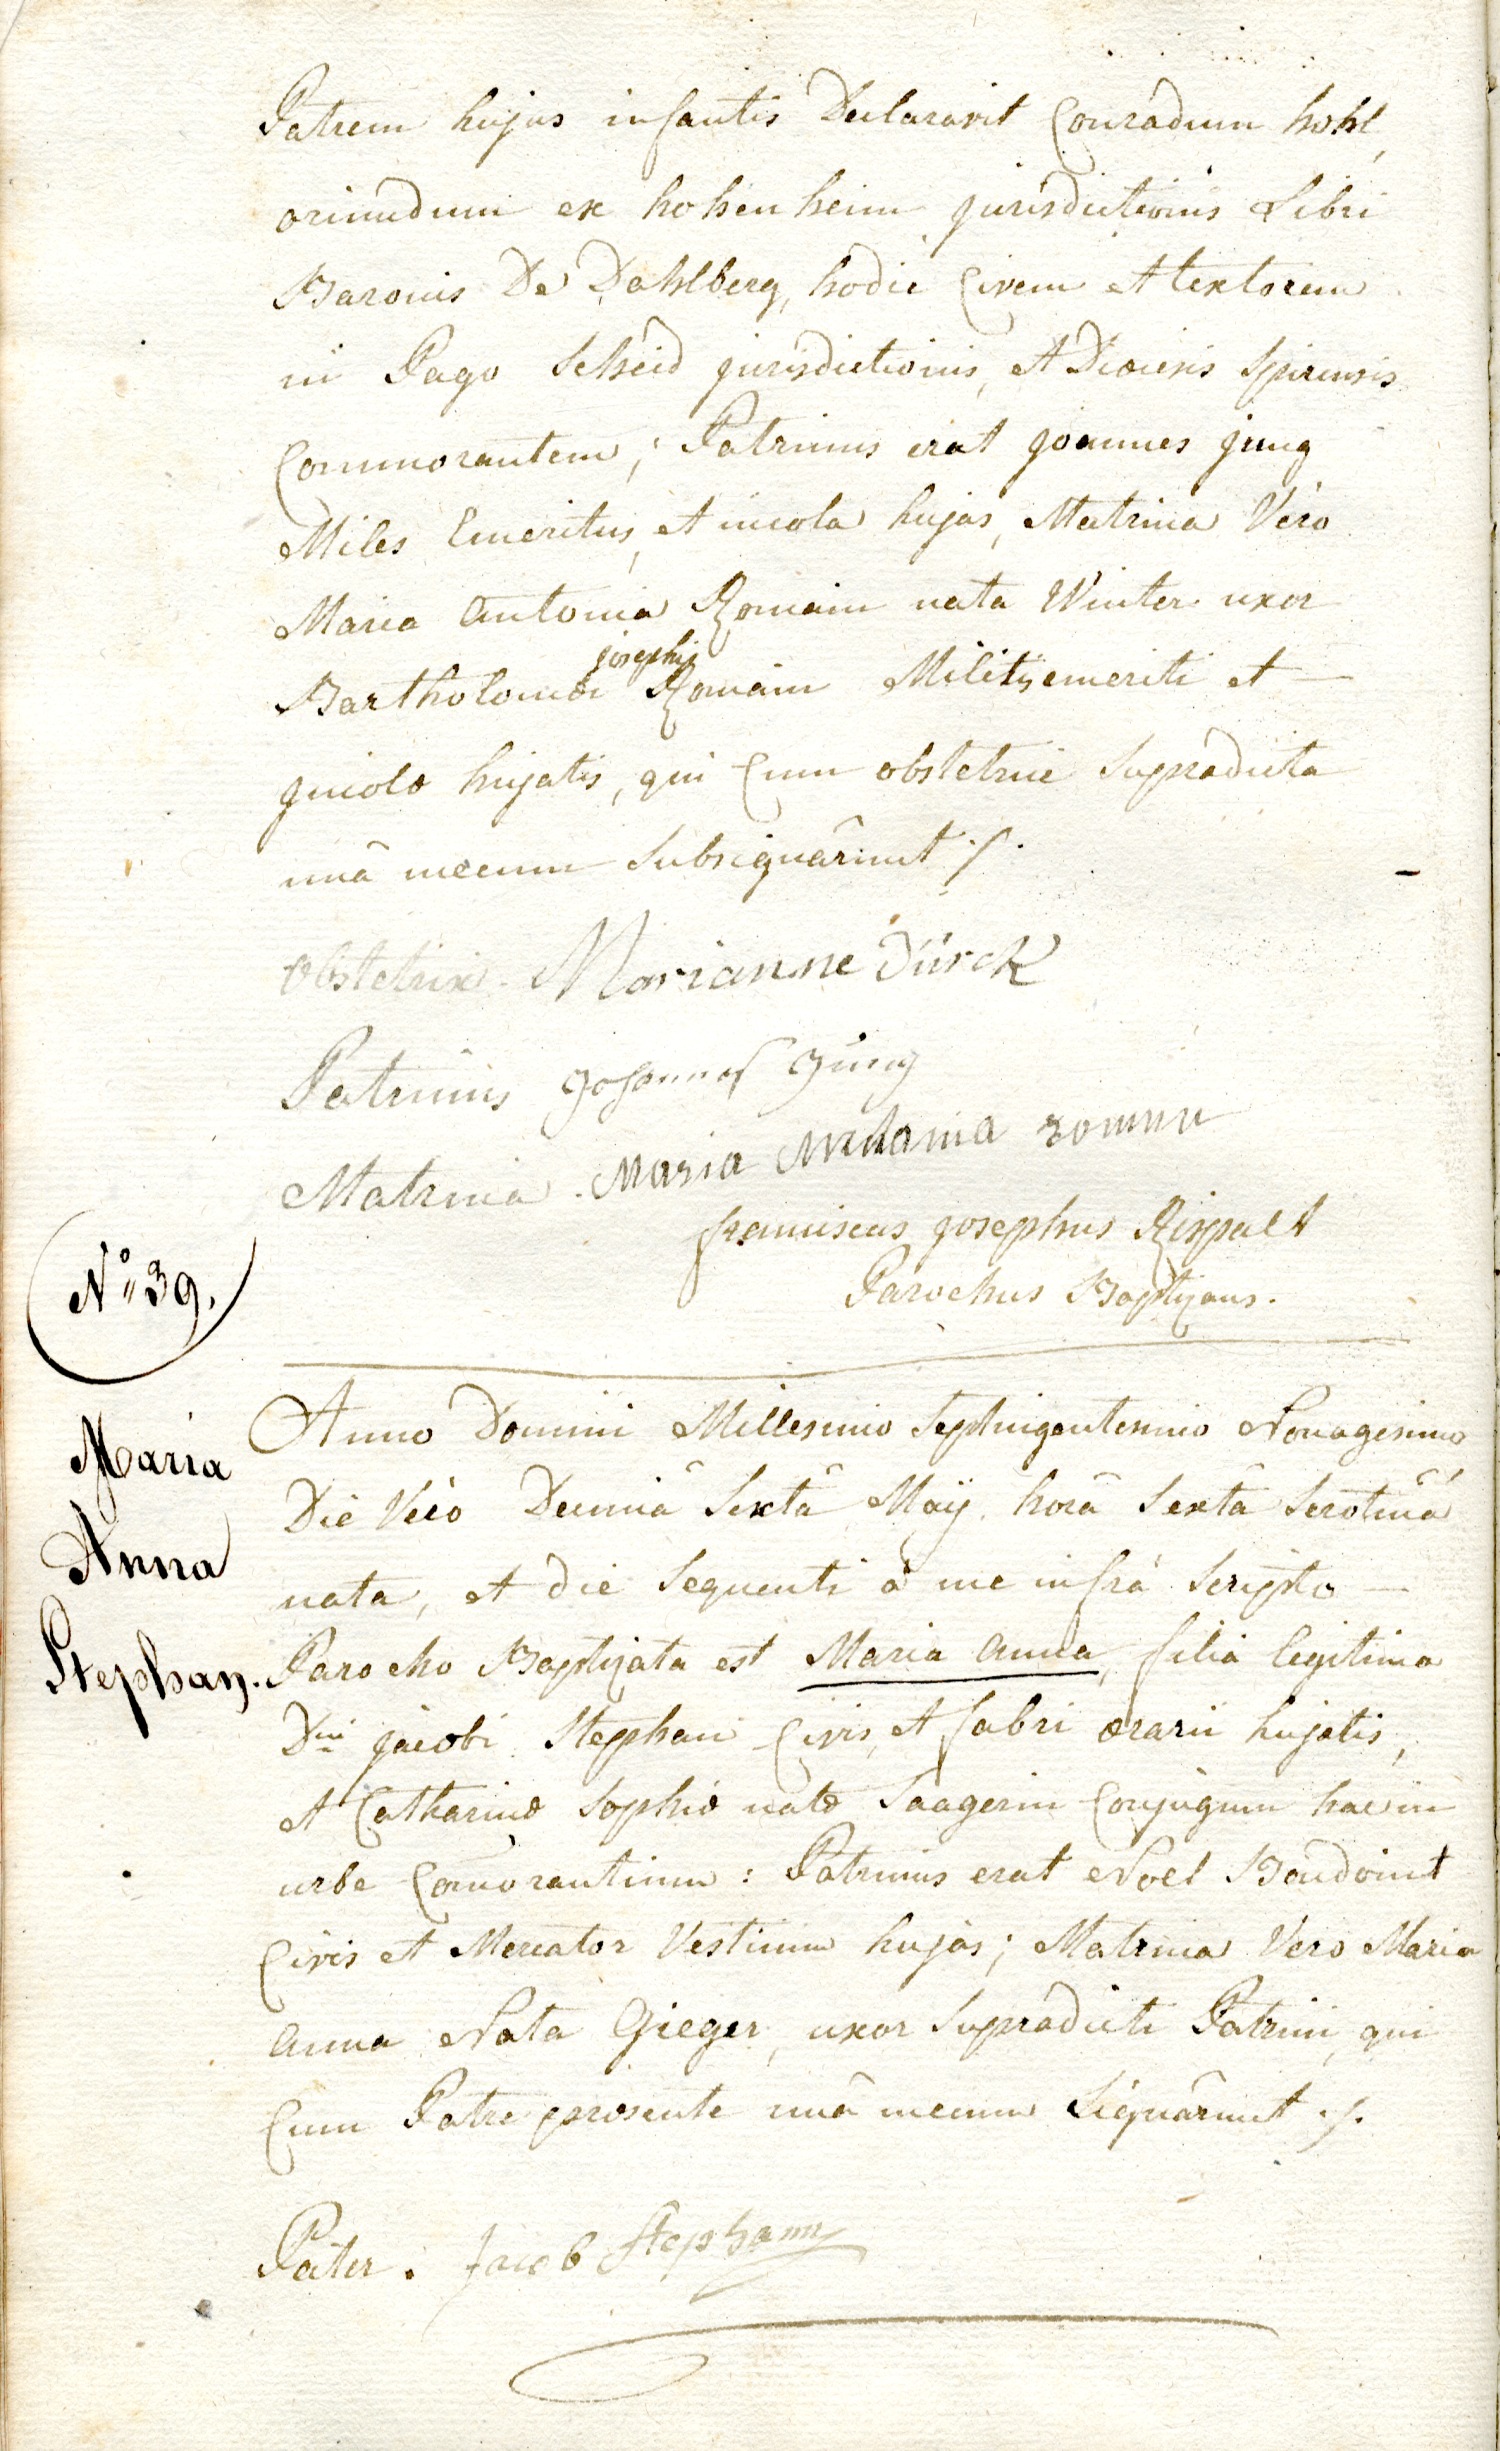 Patrem hujus infantis Declaravit Conradum hohl,
oriundum ex hohenheim jurisdictionis Libri
Baronis De Dahlberg, hodie Civem et textorem
in Pago Scheid jurisdictionis, et Diœcesis Spirensis
Commorantem; Patrinus erat joannes jung
Miles Emeritus, et incola hujas, Matrina Vero
Maria antonia Romain nata Winter uxor
josephi
Bartholomæi Romain Militis emeriti et —
incolæ hujatis, qui Cum obstetrice Supradicta
unâ mecum Subsignârunt ./.
Obstetrix. Marianne Dürck
Patrinus Johannes Jung
Matrina. Maria
franciscus josephus Rispalt
Parochus Baptizans.
N.º 39.
Maria
Anna
Stephan.
Anno Domini Millesimo Septuigentesimo Nonagesimo
Die Verò Decimâ Sextâ Maÿ. horâ Sextâ Serotinâ
nata, et die Sequenti à me infrà Scripto —
Parocho Baptizata est Maria Anna, filia legitima
Dni jacobi Stephan Civis, et fabri ærarii hujatis,
et Catharinæ Sophiæ natæ Saagerin Conjugum hac in
urbe Comorantium: Patrinus erat Noel Baudouint
Civis et Mercator Vestium hujas; Matrina Vero Maria
Anna Nata Gieger, uxor Supradicti Patrini, qui
Cum Patre præsente unâ mecum Signârunt ./.
Pater. Jacob Stephann